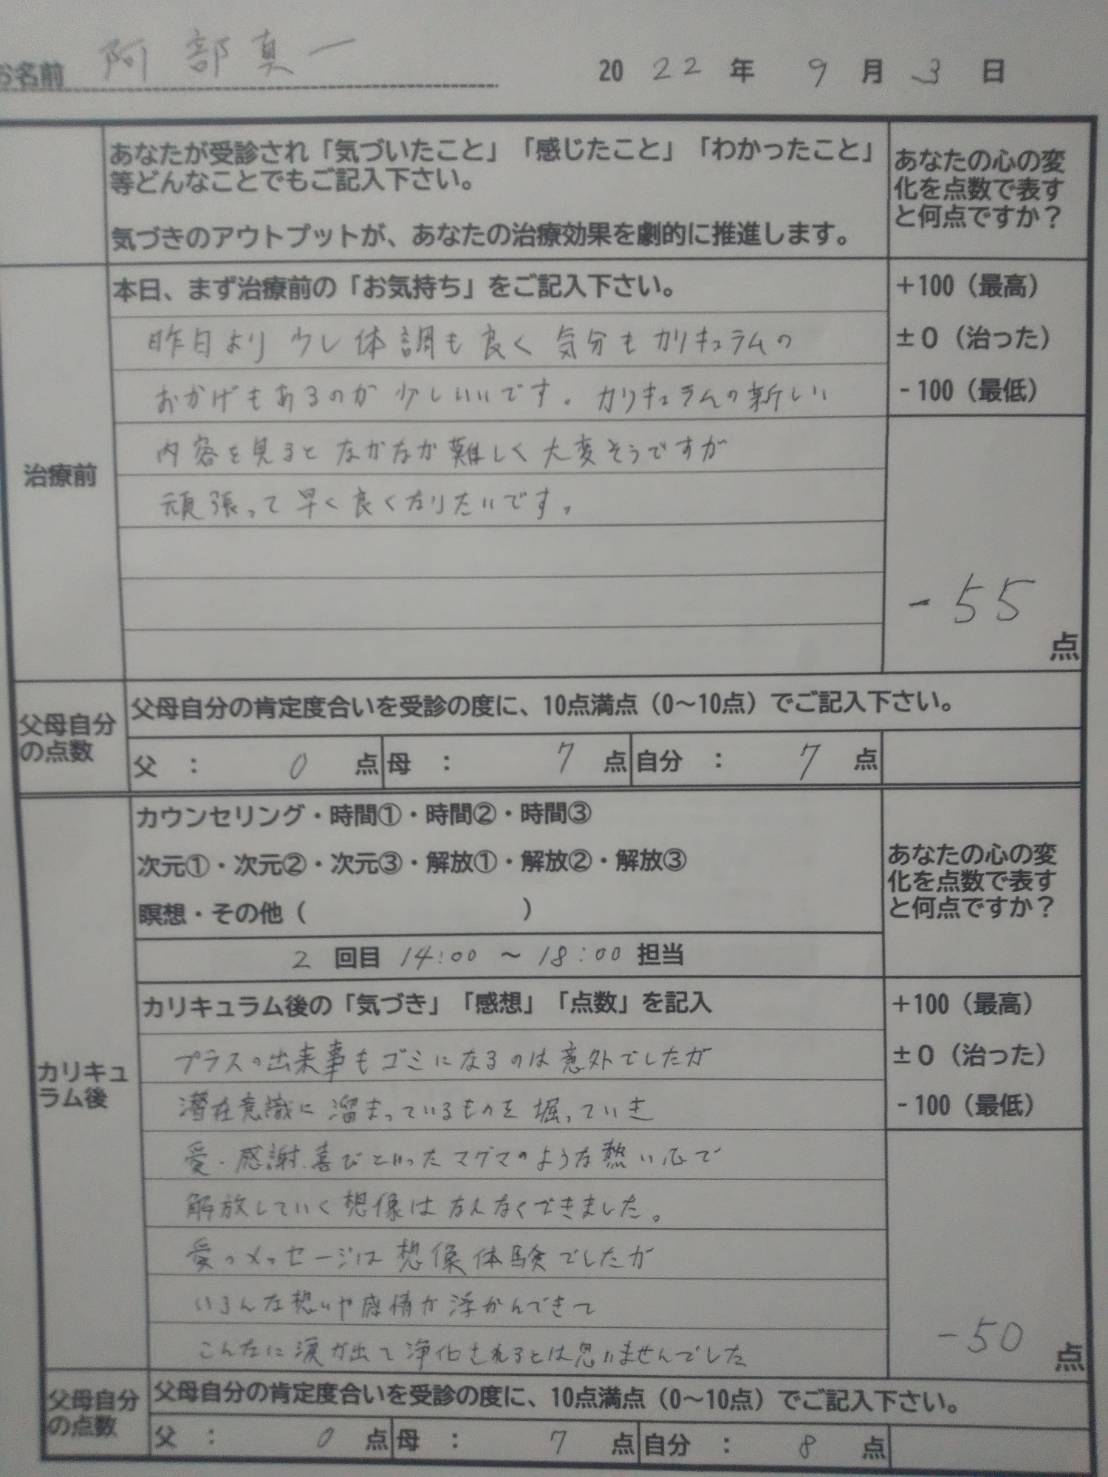 お名前 阿部真一 2022年 9月 3日
あなたが受診され「気づいたこと」「感じたこと」「わかったこと」
等どんなことでもご記入下さい。
気づきのアウトプットが、あなたの治療効果を劇的に推進します。
あなたの心の変
化を点数で表す
と何点ですか？
治療前
本日、まず治療前の「お気持ち」をご記入下さい。
昨日より少し体調も良く気分もカリキュラムの
おかげもあるのか少しいいです。カリキュラムの新しい
内容を見るとなかなか難しく大変そうですが
頑張って早く良くなりたいです。
+100（最高）
±0（治った）
-100（最低）
-55点
父母自分
の点数
父母自分の肯定度合いを受診の度に、10点満点（0～10点）でご記入下さい。
父 ： 0 点 母 ： 7 点 自分 ： 7 点
カリキュ
ラム後
カウンセリング・時間①・時間②・時間③
次元①・次元②・次元③・解放①・解放②・解放③
瞑想・その他（ ）
2 回目 14:00 ～ 18:00 担当
あなたの心の変
化を点数で表す
と何点ですか？
カリキュラム後の「気づき」「感想」「点数」を記入
プラスの出来事もゴミになるのは意外でしたが
潜在意識に溜まっているものを掘っていき
愛・感謝・喜びといったマグマのような熱い心で
解放していく想像はなんなくできました。
愛のメッセージは想像体験でしたが
いろんな想いや感情が浮かんできて
こんなに涙が出て浄化されるとは思いませんでした
+100（最高）
±0（治った）
-100（最低）
-50点
父母自分
の点数
父母自分の肯定度合いを受診の度に、10点満点（0～10点）でご記入下さい。
父 ： 0 点 母 ： 7 点 自分 ： 8 点